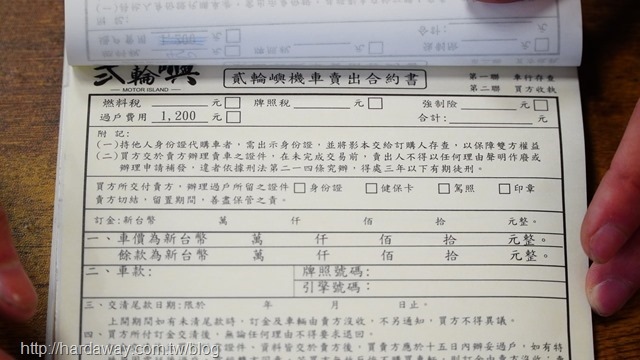 貳輪嶼
MOTOR ISLAND
貳輪嶼機車賣出合約書
第一聯 車行存查
第二聯 買方收執
燃料稅 元 牌照稅 元 強制險 元
過戶費用 1,200 元 合計: 元
附記:
(一)持他人身份證代購車者,需出示身份證,並將影本交給訂購人存查,以保障雙方權益
(二)買方交於賣方辦理賣車之證件,在未完成交易前,賣出人不得以任何理由聲明作廢或
辦理申請補發,違者依據刑法第二一四條究辦,得處三年以下有期徒刑。
買方所交付賣方,辦理過戶所留之證件 身份證 健保卡 駕照 印章
賣方切結,留置期間,善盡保管之責。
訂金:新台幣 萬 仟 佰 拾 元整。
一、車價為新台幣 萬 仟 佰 拾 元整。
餘款為新台幣 萬 仟 佰 拾 元整。
二、車款: 牌照號碼:
引擎號碼:
三、交清尾款日期:限於 年 月 日止。
上開期間如有未清尾款時,訂金及車輛由賣方沒收,不另通知,買方不得異議。
四、買賣方所付訂金交清後,無論任何理由不得要求退回。
http://hardaway.com.tw/blog